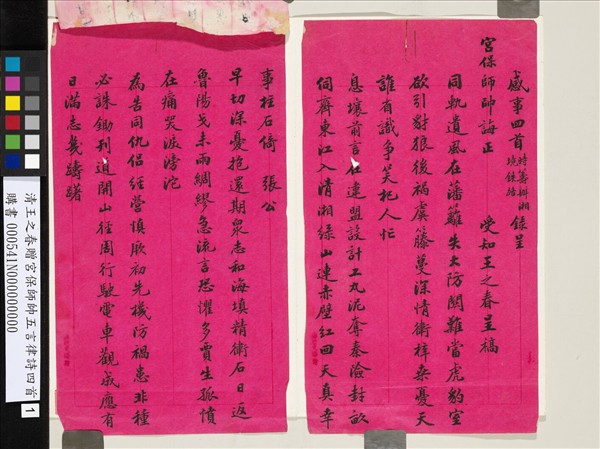 感事四首 時籌辦湘境鐵路 錄呈
宮保師帥誨正 受知王之春呈稿
同軌遺風在藩籬失大防關難當虎豹室
欲引豺狼後禍虞籐蔓深情衛梓桑憂天
誰有識爭笑杞人忙
息壤前言在連盟設計工丸泥奪秦險封畝
伺齊東江入清湘綠山連赤壁紅回天真幸
事柱石倚 張公
早切深憂抱還期衆志和海填精衛石日返
魯陽戈未雨綢繆急流言恐懼多賈生孤憤
在痛哭淚滂沱
為告同仇侶經營慎厥初先機防禍患非種
必誅鋤刊道開山徑周行駛電車觀成應有
日滿志幾躊躇
清王之春贈宮保師帥五言律詩四首 1
購書 000541N000000000